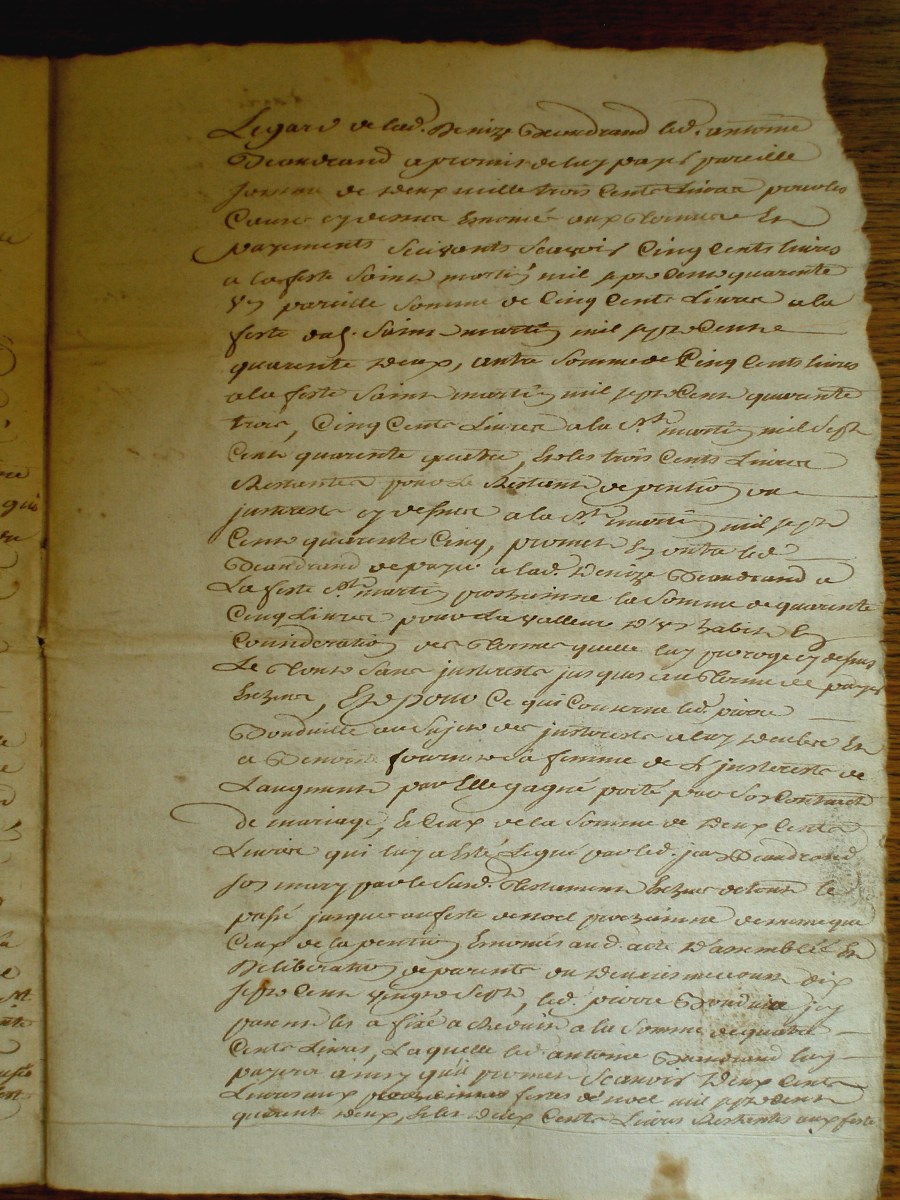 Legard de lad. Denize Deandrand led. antoine
Deandrand a promis de luy payer pareille
somme de deux mille trois Cents Livres pour les
Causes cy dessus Enoncé aux termes Et
payements Suivants Scavoir Cinq Cents livres
a la feste Saint martin mil sept Cent quarente
un pareille somme de Cinq Cents Livres a la
feste dud. Saint martin mil sept Cent
quarente deux, autre Somme de Cinq Cents livres
a la feste Saint martin mil sept Cent quarente
trois, Cinq Cents Livres a la St. martin mil Sept
Cent quarente quatre, Et les trois Cents Livres
Restantes pour le Restant de pention ou
jnterests cy dessus a la St. martin mil sept
Cent quarente Cinq, promet En outre led.
Deandrand de payer a lad. Denize Deandrand a
La feste St. martin prochainne la Somme de quarente
Cinq Livres pour la valleur d'un habit En
Consideration des termes quelle luy proroge cy dessus
Le tout Sans jnterests jusques au terme de payer
Echeus, Et pour Ce qui Concerne led. pierre
au Sujet des jnterests a luy deubs Et
a Benoite fournier Sa femme de jnterests de
Laugment par Elle gagné porté par Son Contract
de mariage, Et Ceux de la Somme de deux Cents
Livres qui luy a Esté Legué par led. jean Deandrand
son mary par le Susd. Testament Echeus de tout le
passé jusques au feste de noel prochainne de meme que
Ceux de la pention Enoncés aud. acte d'assemblée Et
Deliberation de parents du mil
sept Cent vingt Sept, led. pierre jcy
present les a fixé a Reduit a la Somme de quatre
Cents Livres, Laquelle led. antoine Deandrand luy
payera ainsy qu'il promet Scavoir deux Cents
Livres aux prochainnes festes de noel mil sept Cent
quarent deux, Et les deux Cents Livres Restantes aux feste